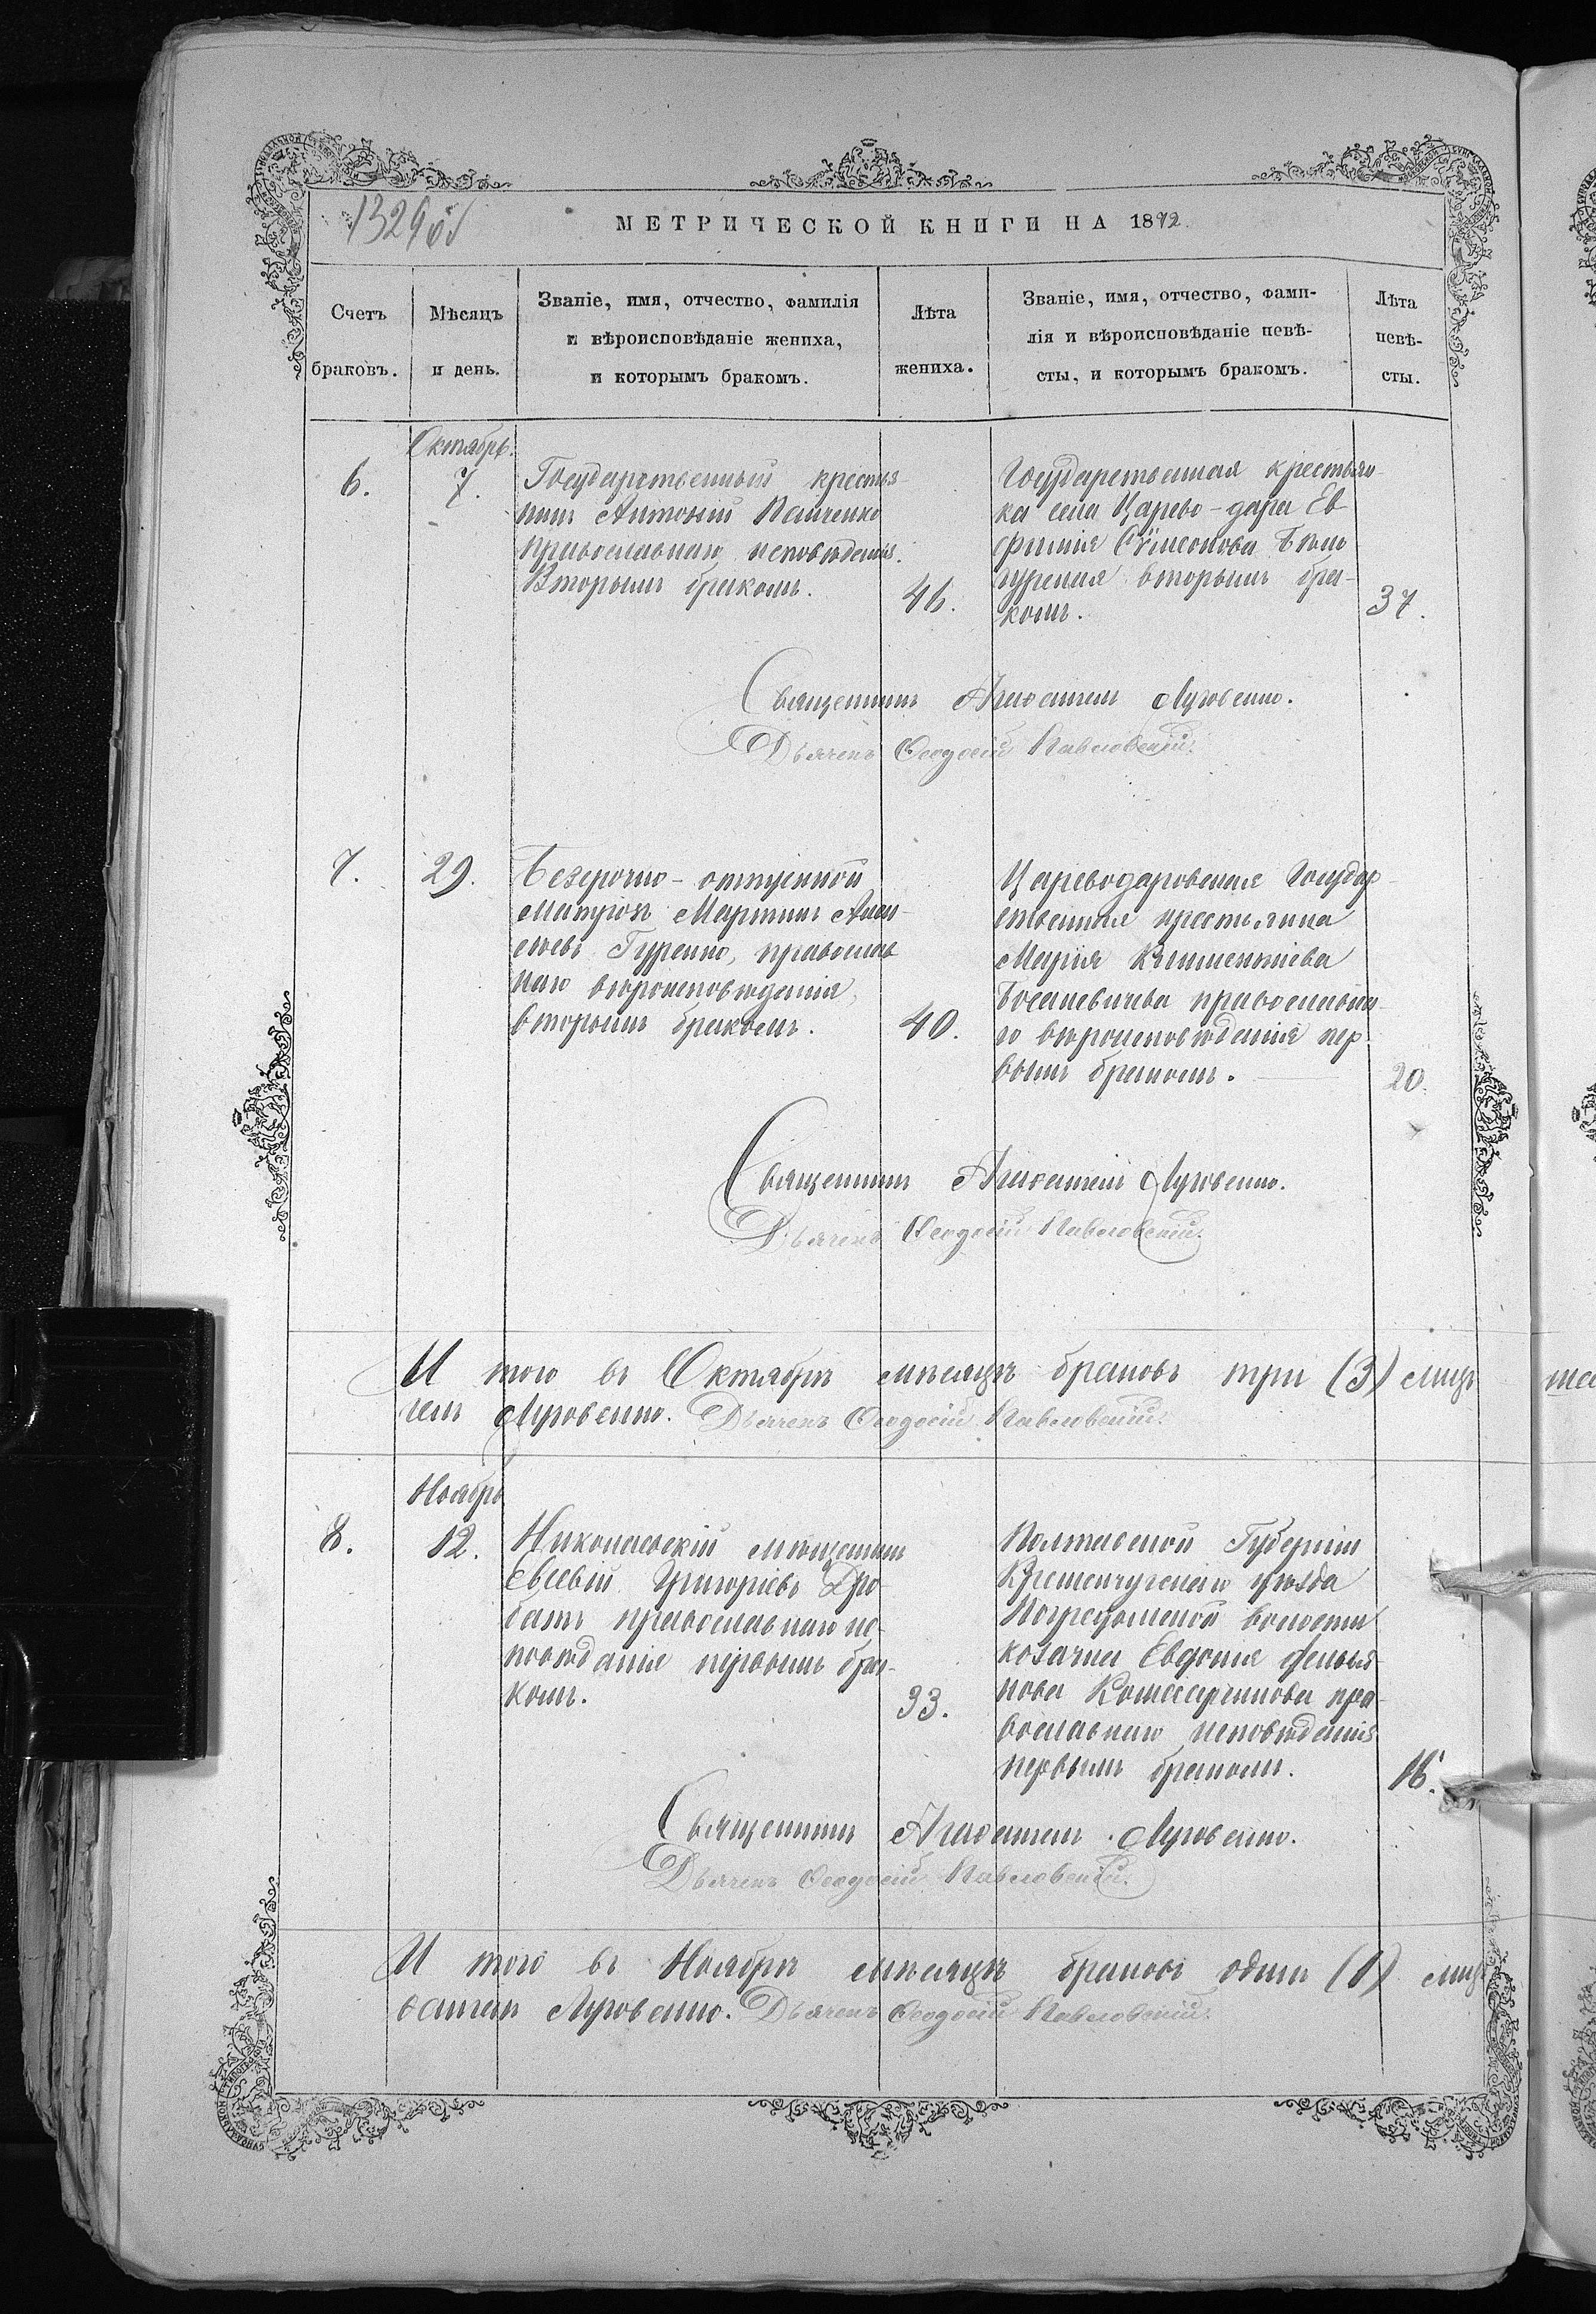 1329 об
МЕТРИЧЕСКОЙ КНИГИ НА 1872.
Счетъ браковъ.
Мѣсяцъ и день.
Званіе, имя, отчество, фамилія
и вѣроисповѣданіе жениха,
и которымъ бракомъ.
Лѣта жениха.
Званіе, имя, отчество, фами-
лія и вѣроисповѣданіе невѣ-
сты, и которымъ бракомъ.
Лѣта невѣ-
сты.
Октябрь.
6.
7.
Государственный крестья
нинъ Антоній Панченко
православнаго исповѣданія.
Вторымъ бракомъ.
46.
Государственная крестьян-
ка села Царево-дара Ев
фимія Сѵмеонова
вторымъ бра-
комъ.
37.
Священникъ Луговенко.
Дьячекъ Ѳеодосій Павловскій.
7.
29.
Безсрочно-отпускной
Мартинъ Алек-
сѣевъ Гуренко, православ
наго вѣроисповѣданія,
вторымъ бракомъ.
40.
Цареводаровская Государ-
ственная крестьянка
Марія Климентіева
православна
го вѣроисповѣданія пер-
вымъ бракомъ.
20.
Священникъ Луговенко.
Дьячекъ Ѳеодосій Павловскій.
И того въ Октябрѣ мѣсяцѣ браковъ три (3) свящ
Луговенко. Дьячекъ Ѳеодосій Павловскій.
Ноябрь
8.
12.
Николаевскій мѣщанинъ
Евсевій Григоріевъ Дро-
батъ православнаго ис-
повѣданія первымъ бра-
комъ.
33.
Полтавской Губерніи
Кременчугскаго уѣзда
волости
козачка Евдокія Демья
нова Комисаренкова пра-
вославнаго исповѣданія
первымъ бракомъ.
Священникъ Луговенко.
Дьячекъ Ѳеодосій Павловскій.
И того въ Ноябрѣ мѣсяцѣ браковъ одинъ (1) свящ
Луговенко. Дьячекъ Ѳеодосій Павловскій.